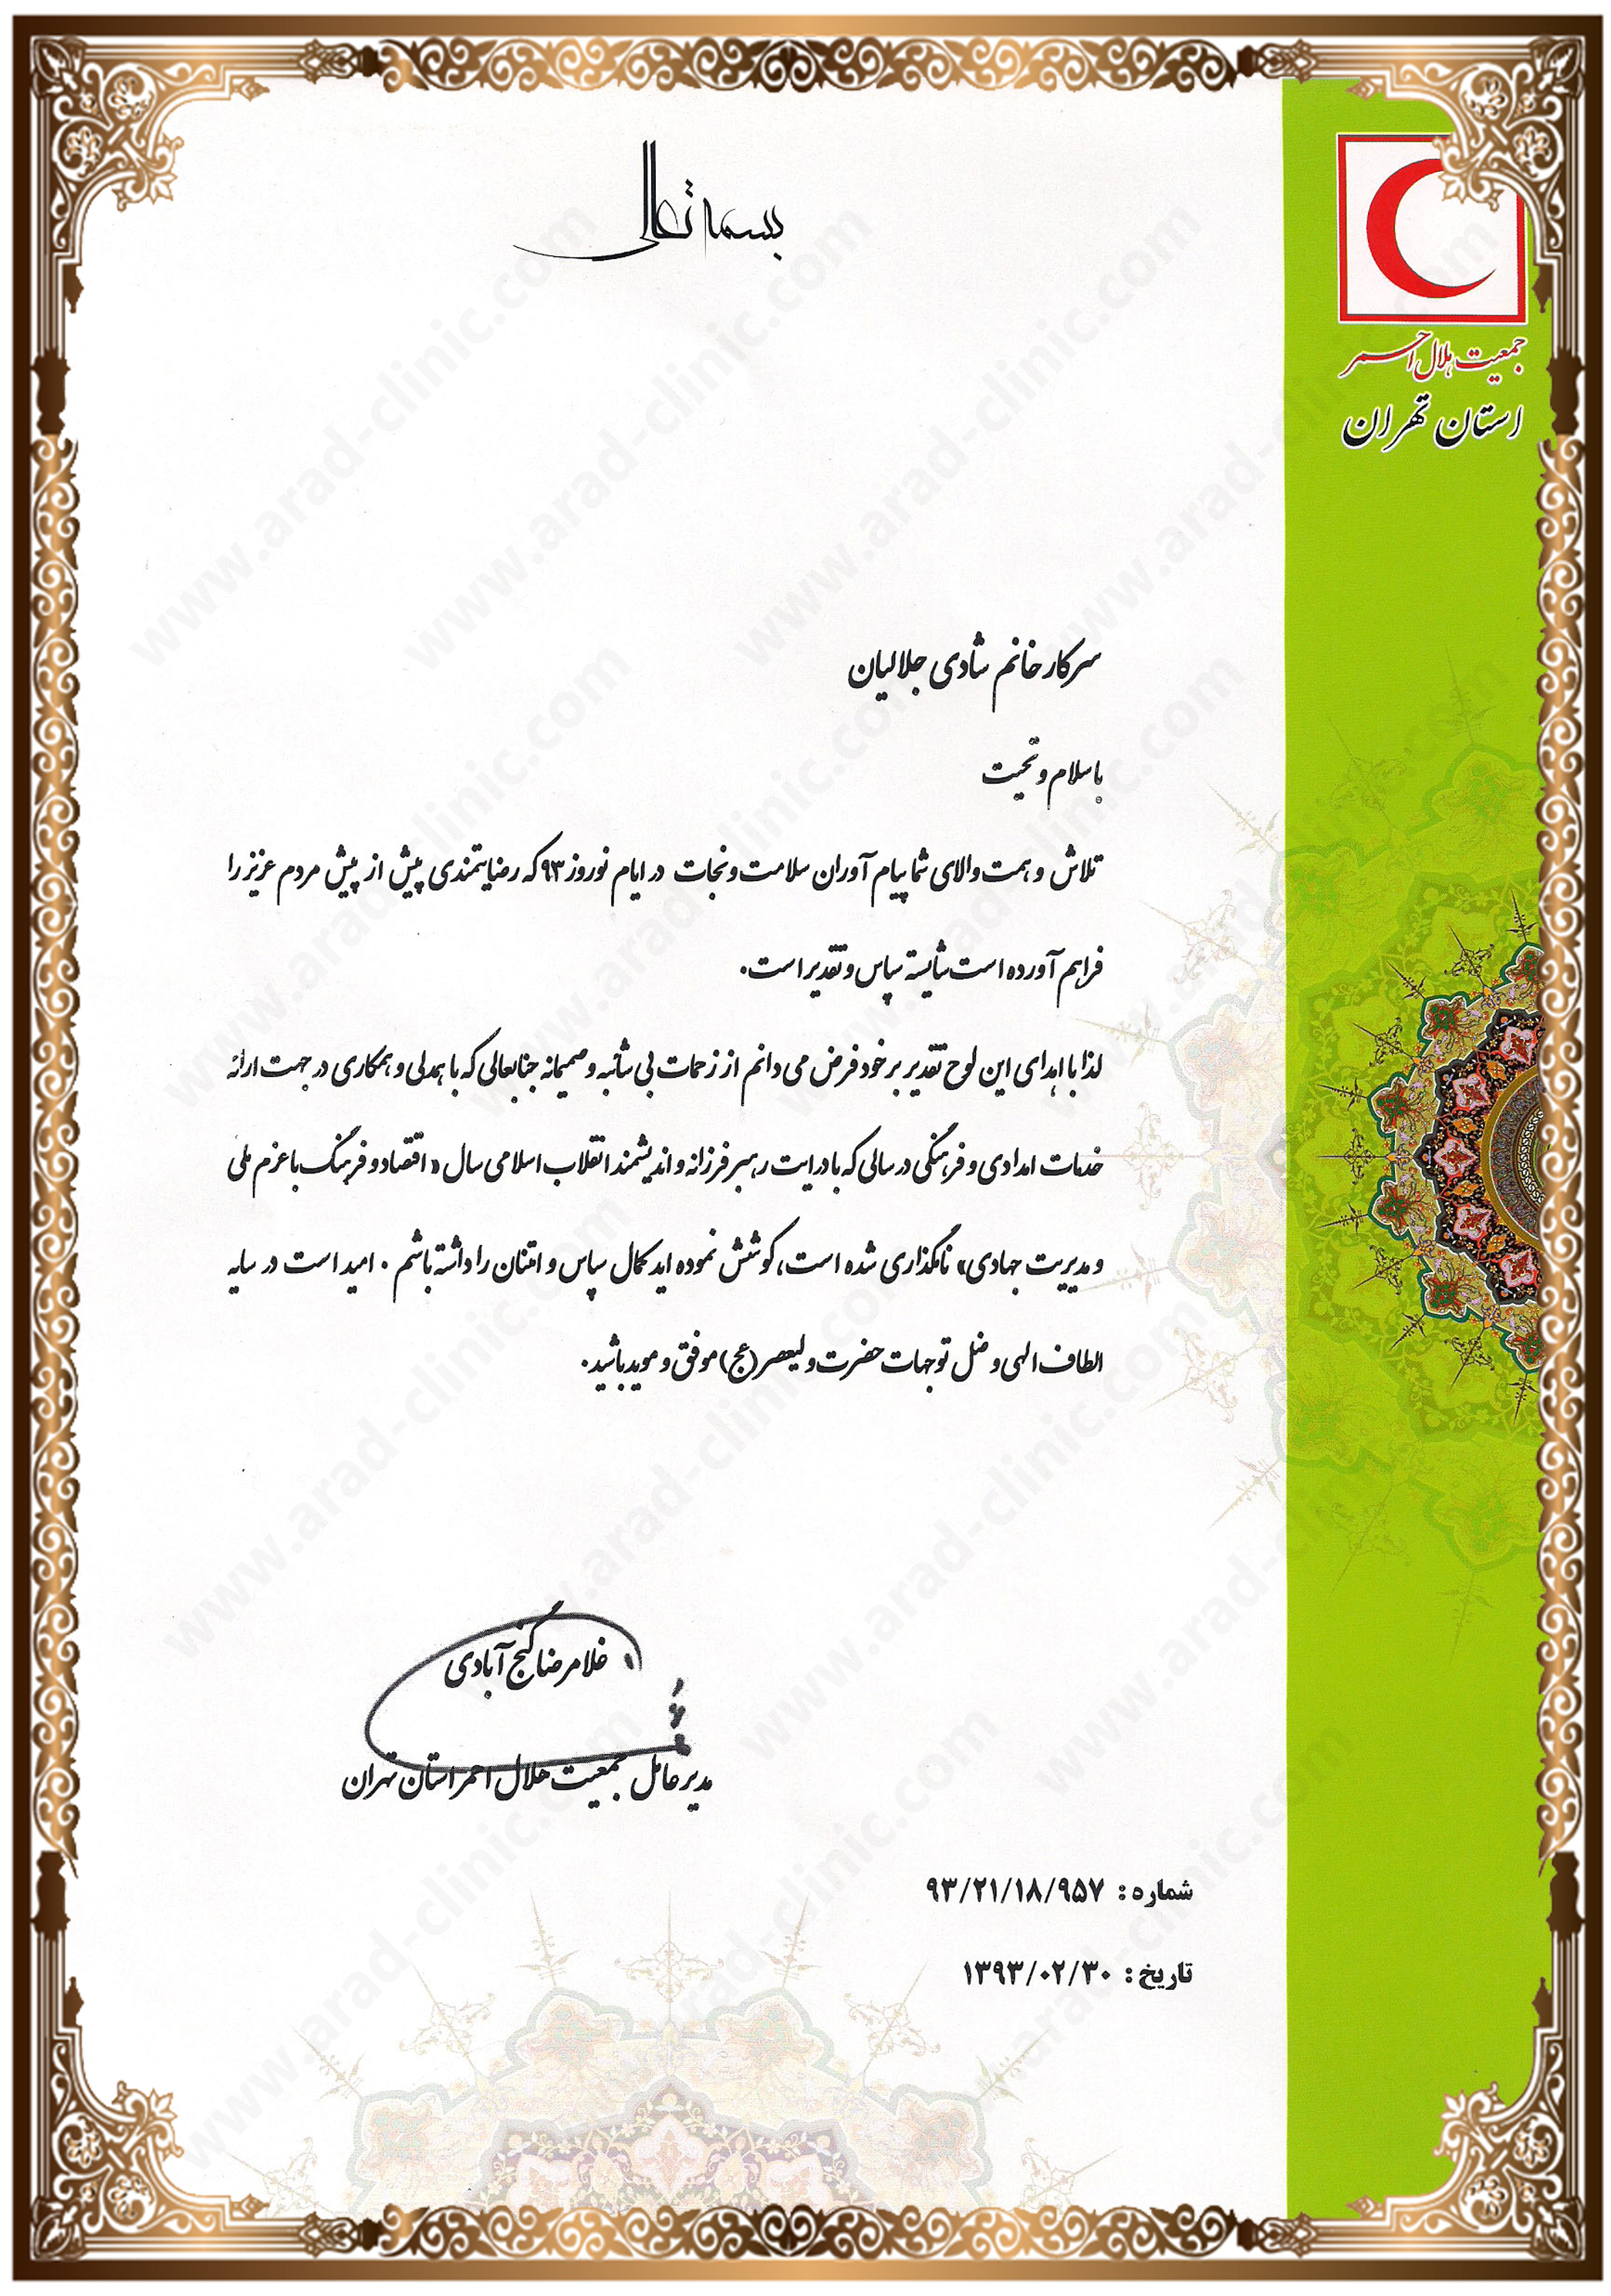 بسمه تعالی
جمعیت هلال احمر
استان تهران
سرکار خانم شادی جلالیان
با سلام و تحیت
تلاش و همت والای شما پیام آوران سلامت و نجات در ایام نوروز ۹۳ که رضایتمندی بیش از پیش مردم عزیز را
فراهم آورده است شایسته سپاس و تقدیر است.
لذا با اهدای این لوح تقدیر بر خود فرض می دانم از زحمات بی شائبه و صمیمانه جنابعالی که با همدلی و همکاری در جهت ارائه
خدمات امدادی و فرهنگی در سالی که با درایت رهبر فرزانه و اندیشمند انقلاب اسلامی سال « اقتصاد و فرهنگ با عزم ملی
و مدیریت جهادی» نامگذاری شده است، کوشش نموده اید کمال سپاس و امتنان را داشته باشم . امید است در سایه
الطاف الهی و ضل توجهات حضرت ولیعصر (عج) موفق و موید باشید.
غلامرضا گنج آبادی
مدیرعامل جمعیت هلال احمر استان تهران
شماره : ۹۳/۲۱/۱۸/۹۵۷
تاریخ : ۱۳۹۳/۰۲/۳۰
www.arad-clinic.com